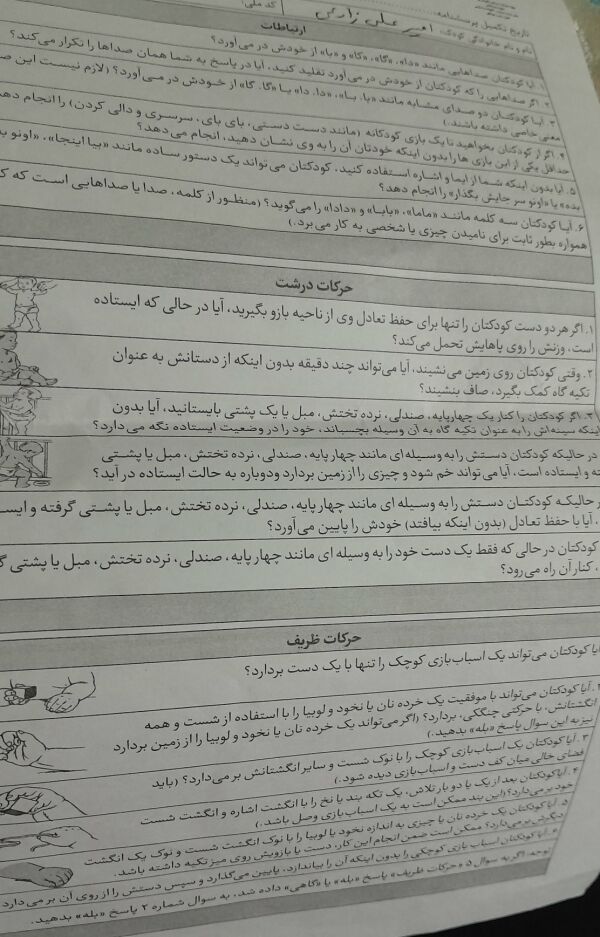 تاریخ تکمیل پرسشنامه
نام و نام خانوادگی کودک: امیر علی زارعی
کد ملی:
ارتباطات
۱. آیا کودکتان صداهایی مانند «دا»، «گا»، «کا» و «با» از خودش در می‌آورد؟
۲. اگر صداهایی را که کودکتان از خودش در می‌آورد تقلید کنید، آیا در پاسخ به شما همان صداها را تکرار می‌کند؟
۳. آیا کودکتان دو صدای مشابه مانند «با. با»، «دا. دا» یا «گا. گا» از خودش در می‌آورد؟ (لازم نیست این
معنی خاصی داشته باشند.)
۴. اگر از کودکتان بخواهید تا یک بازی کودکانه (مانند دست دستی، بای بای، سرسری و دالی کردن) را انجام
حداقل یکی از این بازی ها را بدون اینکه خودتان آن را به وی نشان دهید، انجام می‌دهد؟
۵. آیا بدون اینکه شما از ایما و اشاره استفاده کنید، کودکتان می‌تواند یک دستور ساده مانند «بیا اینجا»، «اونو
بده» یا «اونو سر جایش بگذار» را انجام دهد؟
۶. آیا کودکتان سه کلمه مانند «ماما»، «بابا» و «دادا» را می‌گوید؟ (منظور از کلمه، صدا یا صداهایی است که
همواره بطور ثابت برای نامیدن چیزی یا شخصی به کار می‌برد.)
حرکات درشت
۱. اگر هر دو دست کودکتان را تنها برای حفظ تعادل وی از ناحیه بازو بگیرید، آیا در حالی که ایستاده
است، وزنش را روی پاهایش تحمل می‌کند؟
۲. وقتی کودکتان روی زمین می‌نشیند، آیا می‌تواند چند دقیقه بدون اینکه از دستانش به عنوان
تکیه گاه کمک بگیرد، صاف بنشیند؟
۳. اگر کودکتان را کنار یک چهارپایه، صندلی، نرده تختش، مبل یا یک پشتی بایستانید، آیا بدون
اینکه سینه‌اش را به عنوان تکیه گاه به آن وسیله بچسباند، خود را در وضعیت ایستاده نگه می‌دارد؟
در حالیکه کودکتان دستش را به وسیله ای مانند چهار پایه، صندلی، نرده تختش، مبل یا پشتی
و ایستاده است، آیا می‌تواند خم شود و چیزی را از زمین بردارد و دوباره به حالت ایستاده در آید؟
حالیکه کودکتان دستش را به وسیله ای مانند چهار پایه، صندلی، نرده تختش، مبل یا پشتی گرفته و
، آیا با حفظ تعادل (بدون اینکه بیافتد) خودش را پایین می‌آورد؟
کودکتان در حالی که فقط یک دست خود را به وسیله ای مانند چهار پایه، صندلی، نرده تختش، مبل یا پشتی
، کنار آن راه می‌رود؟
حرکات ظریف
آیا کودکتان می‌تواند یک اسباب‌بازی کوچک را تنها با یک دست بردارد؟
آیا کودکتان می‌تواند با موفقیت یک خرده نان یا نخود و لوبیا را با استفاده از شست و همه
انگشتانش، با حرکتی چنگکی، بردارد؟ (اگر می‌تواند یک خرده نان یا نخود و لوبیا را از زمین بردارد
نیز به این سوال پاسخ «بله» بدهید.)
۳. آیا کودکتان یک اسباب‌بازی کوچک را با نوک شست و سایر انگشتانش بر می‌دارد؟ (باید
فضای خالی میان کف دست و اسباب‌بازی دیده شود.)
۴. آیا کودکتان بعد از یک یا دو بار تلاش، یک تکه بند یا نخ را با انگشت اشاره و انگشت شست
خود بر می‌دارد؟ (این بند ممکن است به یک اسباب‌بازی وصل باشد.)
۵. آیا کودکتان یک خرده نان یا چیزی به اندازه نخود یا لوبیا را با نوک انگشت شست و نوک یک انگشت
دیگرش بر می‌دارد؟ ممکن است ضمن انجام این کار، دست یا بازویش روی میز تکیه داشته باشد.
۶. آیا کودکتان اسباب بازی کوچکی را بدون اینکه آن را بیاندازد، پایین می‌گذارد و سپس دستش را از روی آن بر می‌دارد
توجه: اگر به سوال ۵ «حرکات ظریف» پاسخ «بله» یا «گاهی» داده شد، به سوال شماره ۲ پاسخ «بله» بدهید.